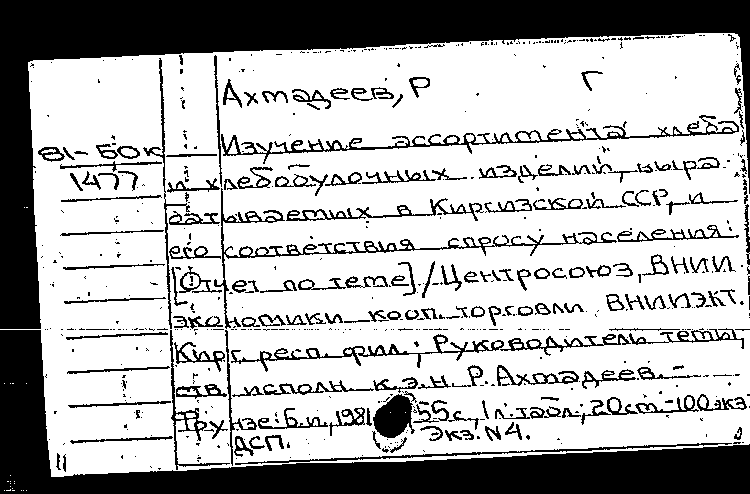 Ахмадеев, Р Г
81-БОК Изучение ассортимента хлеба
1477 и хлебобулочных изделий, выра-
батываемых в Киргизской ССР, и
его соответствия спросу населения:
[Отчет по теме] / Центросоюз, ВНИИ
экономики кооп. торговли ВНИИЭКТ.
Кирг. респ. фил.; Руководитель темы,
отв. исполн. к.э.н. Р. Ахмадеев. -
Фрунзе: Б.и., 1981 55с, 1 л. табл.; 20см -100 экз
ДСП. Экз. N4.